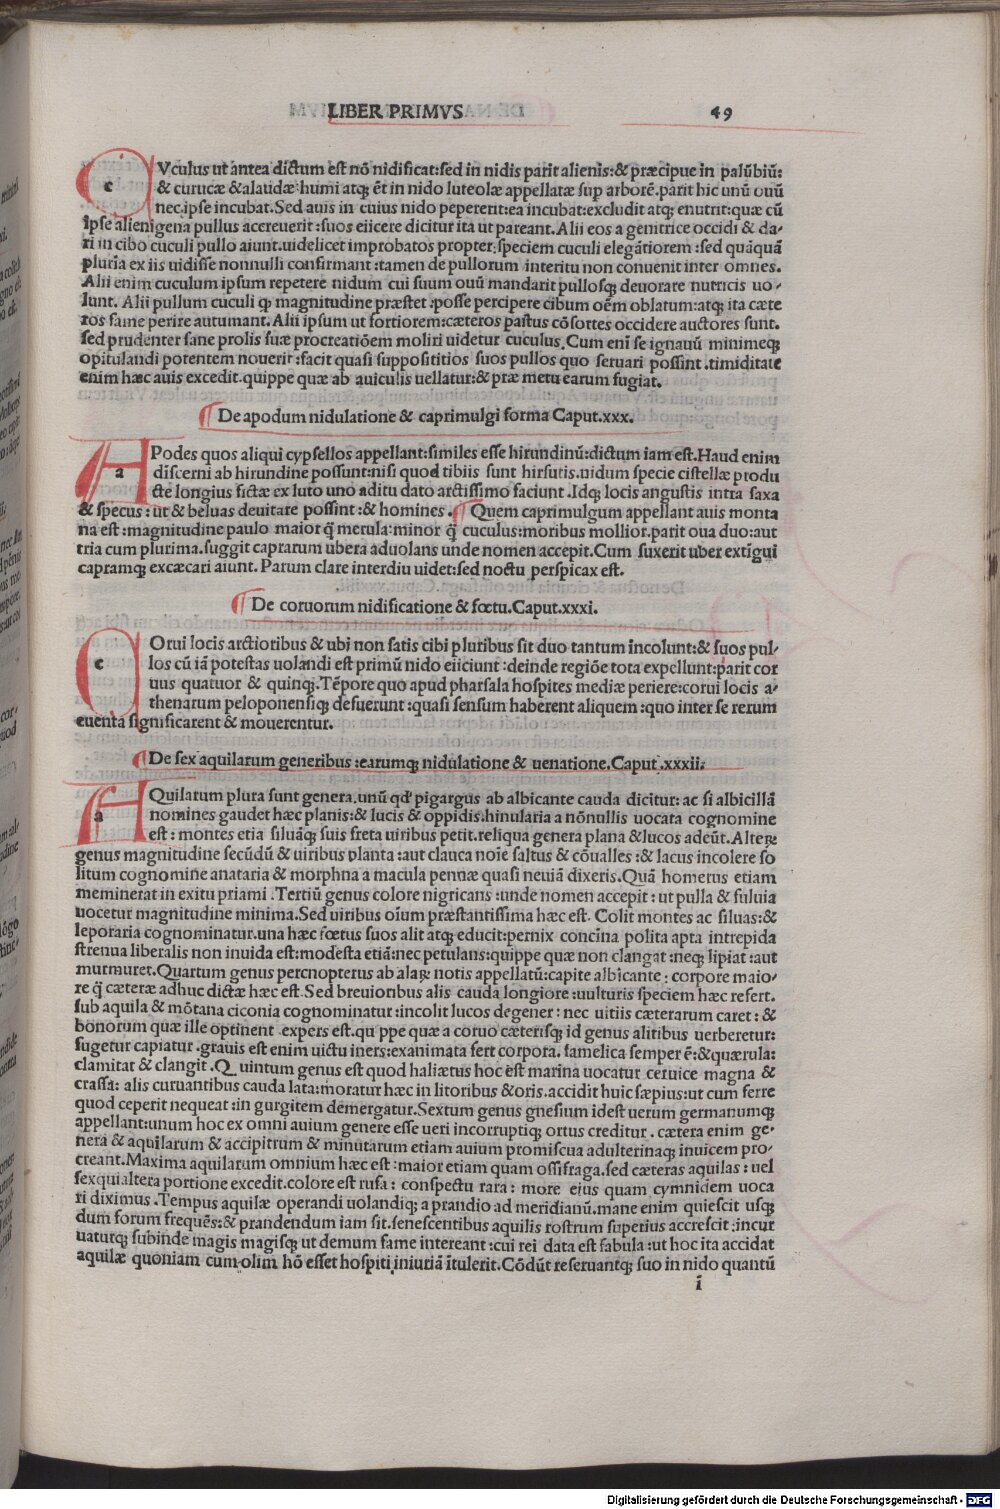 LIBER PRIMVS 49
CVculus ut antea dictum est nō nidificat:sed in nidis parit alienis:& præcipue in palūbiū:
& curucæ & alaudæ humi atq; ēt in nido luteolæ appellatæ sup arborē.parit hic unū ouū
nec ipse incubat.Sed auis in cuius nido pepererit:ea incubat:excludit atq; enutrit:quæ cū
ipse alienigena pullus acreuerit :suos eiicere dicitur ita ut pareant. Alii eos a genitrice occidi & da-
ri in cibo cuculi pullo aiunt.uidelicet improbatos propter speciem cuculi elegātiorem :sed quāquā
pluria ex iis uidisse nonnulli confirmant :tamen de pullorum interitu non conuenit inter omnes.
Alii enim cuculum ipsum repetere nidum cui suum ouū mandarit pullosq; deuorare nutricis uo-
lunt. Alii pullum cuculi q magnitudine præstet :posse percipere cibum oēm oblatum:atq; ita cæte
ros fame perire autumant. Alii ipsum ut fortiorem:cæteros pastus cōsortes occidere auctores sunt.
sed prudenter sane prolis suæ procreatiōem moliri uidetur cuculus.Cum enī se ignauū minimeq;
opitulandi potentem nouerit :facit quasi supposititios suos pullos quo seruari possint .timiditate
enim hæc auis excedit.quippe quæ ab auiculis uellatur:& præ metu earum fugiat.
¶ De apodum nidulatione & caprimulgi forma Caput.xxx.
APodes quos aliqui cypsellos appellant:similes esse hirundinū:dictum iam est.Haud enim
discerni ab hirundine possunt:nisi quod tibiis sunt hirsutis.nidum specie cistellæ produ
ctæ longius fictæ ex luto uno aditu dato arctissimo faciunt .Idq; locis angustis intra saxa
& specus : ut & beluas deuitare possint :& homines . ¶ Quem caprimulgum appellant auis monta
na est :magnitudine paulo maior q̄ merula:minor q̄ cuculus:moribus mollior.parit oua duo:aut
tria cum plurima.suggit caprarum ubera aduolans unde nomen accepit.Cum suxerit uber extīgui
capramq; excæcari aiunt. Parum clare interdiu uidet:sed noctu perspicax est.
¶ De coruorum nidificatione & fœtu.Caput.xxxi.
COrui locis arctioribus & ubi non satis cibi pluribus sit duo tantum incolunt:& suos pul-
los cū iā potestas uolandi est primū nido eiiciunt :deinde regiōe tota expellunt:parit cor
uus quatuor & quinq;.Tēpore quo apud pharsala hospites mediæ periere:corui locis a-
thenarum peloponensiq; desuerunt :quasi sensum haberent aliquem :quo inter se rerum
euenta significarent & mouerentur.
¶ De sex aquilarum generibus :earumq; nidulatione & uenatione.Caput.xxxii.
AQuilarum plura sunt genera.unū qd pigargus ab albicante cauda dicitur: ac si albicillā
nomines gaudet hæc planis:& lucis & oppidis.hinularia a nōnullis uocata cognomine
est : montes etia siluāq; suis freta uiribus petit.reliqua genera plana & lucos adeūt.Alteꝝ
genus magnitudine secūdū & uiribus planta :aut clauca noīe saltus & cōualles :& lacus incolere so
litum cognomine anataria & morphna a macula pennæ quasi neuiā dixeris.Quā homerus etiam
meminerat in exitu priami .Tertiū genus colore nigricans :unde nomen accepit : ut pulla & fuluia
uocetur magnitudine minima.Sed uiribus oīum præstantissima hæc est. Colit montes ac siluas:&
leporaria cognominatur.una hæc fœtus suos alit atq; educit:pernix concīna polita apta intrepida
strenua liberalis non inuida est:modesta etiā:nec petulans:quippe quæ non clangat :neq; lipiat :aut
murmuret.Quartum genus percnopterus ab alaꝝ notis appellatū:capite albicante : corpore maio-
re q̄ cæteræ adhuc dictæ hæc est.Sed breuioribus alis cauda longiore :uulturis speciem hæc refert.
sub aquila & mōtana ciconia cognominatur :incolit lucos degener : nec uitiis cæterarum caret : &
bonorum quæ ille optinent expers est.qu ppe quæ a coruo cæterisq; id genus alitibus uerberetur:
fugetur capiatur .grauis est enim uictu iners:exanimata fert corpora. famelica semper ē:& quærula:
clamitat & clangit .Q uintum genus est quod haliætus hoc est marina uocatur ceruice magna &
crassa: alis curuantibus cauda lata:moratur hæc in litoribus & oris.accidit huic sæpius:ut cum ferre
quod ceperit nequeat :in gurgitem demergatur.Sextum genus gnesium idest uerum germanumq;
appellant:unum hoc ex omni auium genere esse ueri incorruptiq; ortus creditur . cætera enim ge-
nera & aquilarum & accipitrum & minutarum etiam auium promiscua adulterinaq; inuicem pro-
creant.Maxima aquilarum omnium hæc est : maior etiam quam ossifraga.sed cæteras aquilas : uel
sexquialtera portione excedit.colore est rufa : conspectu rara : more eius quam cymnidem uoca
ri diximus .Tempus aquilæ operandi uolandiq; a prandio ad meridianū.mane enim quiescit usq;
dum forum frequēs:& prandendum iam sit.senescentibus aquilis rostrum superius accrescit :incur
uaturq; subinde magis magisq; ut demum fame intereant :cui rei data est fabula :ut hoc ita accidat
aquilæ quoniam cum olim hō esset hospiti iniuriā ītulerit.Cōdūt reseruantq; suo in nido quantū
i
Digitalisierung gefördert durch die Deutsche Forschungsgemeinschaft - DFG